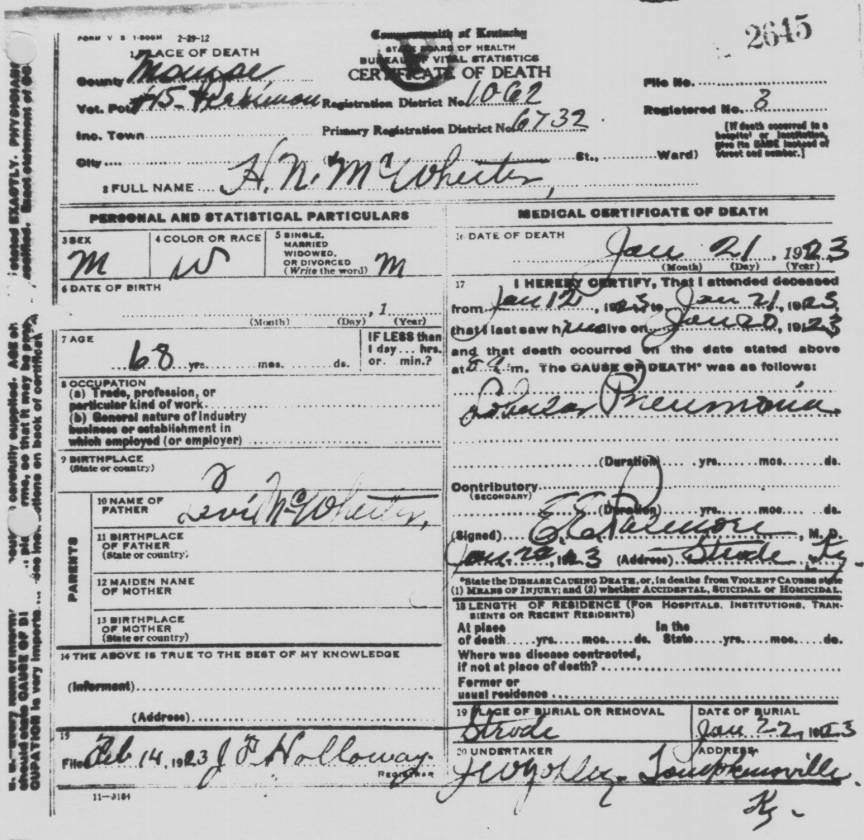 FORM V S 1-500M 2-29-12
Commonwealth of Kentucky
2645
STATE BOARD OF HEALTH
BUREAU OF VITAL STATISTICS
CERTIFICATE OF DEATH
1 PLACE OF DEATH
County Monroe
File No.
Vot. Pct. Registration District No. 1062
Registered No. 3
Inc. Town Primary Registration District No. 6732
[If death occurred in a hospital or institution, give its NAME instead of street and number.]
City St., Ward)
2 FULL NAME H. N. McWherter,
PERSONAL AND STATISTICAL PARTICULARS
3 SEX M
4 COLOR OR RACE W
5 SINGLE, MARRIED WIDOWED, OR DIVORCED (Write the word) M
6 DATE OF BIRTH
, 1
(Month) (Day) (Year)
7 AGE
68 yrs. mos. ds.
IF LESS than 1 day... hrs. or min.?
8 OCCUPATION
(a) Trade, profession, or
particular kind of work
(b) General nature of industry
business or establishment in
which employed (or employer)
9 BIRTHPLACE
(State or country)
PARENTS
10 NAME OF FATHER Levi McWherter,
11 BIRTHPLACE
OF FATHER
(State or country)
12 MAIDEN NAME
OF MOTHER
13 BIRTHPLACE
OF MOTHER
(State or country)
14 THE ABOVE IS TRUE TO THE BEST OF MY KNOWLEDGE
(Informant)
(Address)
15
Filed Feb 14, 1923 J F Holloway
REGISTRAR
11-3184
MEDICAL CERTIFICATE OF DEATH
16 DATE OF DEATH
Jan 21, 1923
(Month) (Day) (Year)
17 I HEREBY CERTIFY, That I attended deceased
from Jan 12, 1923, to Jan 21, 1923,
that I last saw him alive on Jan 20, 1923
and that death occurred on the date stated above
at m. The CAUSE OF DEATH* was as follows:
Pneumonia
(Duration) yrs. mos. ds.
Contributory
(SECONDARY)
(Duration) yrs. mos. ds.
(Signed) E E Palmore, M. D.
Jan. 1923 (Address) Strode Ky.
*State the DISEASE CAUSING DEATH, or, in deaths from VIOLENT CAUSES state
(1) MEANS OF INJURY; and (2) whether ACCIDENTAL, SUICIDAL or HOMICIDAL.
18 LENGTH OF RESIDENCE (FOR HOSPITALS, INSTITUTIONS, TRAN-
SIENTS OR RECENT RESIDENTS)
At place of death yrs. mos. ds. In the State yrs. mos. ds.
Where was disease contracted,
if not at place of death?
Former or
usual residence
19 PLACE OF BURIAL OR REMOVAL
Strode
DATE OF BURIAL
Jan 22, 1923
20 UNDERTAKER
ADDRESS
Tompkinsville
Ky.